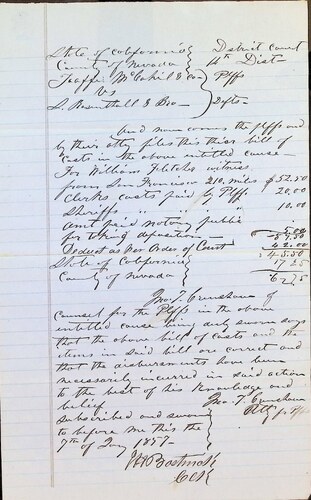 State of California } District Court
County of Nevada } 14th Dist
Jeaffrie McCahil & co Plffs
vs
L. Rosenthall & Bro Defts
And now comes the plffs and
by their atty files this their bill of
Costs in the above entitled cause
For William Fletcher witness
from San Francisco 210 miles $52.50
Clerks costs paid by Plff. 20.00
Sheriffs " " " 10.00
Amt paid notary public
for taking deposition 5.00
87.50
Deduct as per Order of Court 42.00
State of California } 45.50
17.25
County of Nevada } 62.75
Jno. T. Crenshaw of
Counsel for the Plffs in the above
entitled cause being duly sworn says
that the above bill of costs and the
items in said bill are correct and
that the disbursments have been
necessarily incurred in said action
to the best of his knowledge and
belief Jno. T. Crenshaw
Subscribed and sworn Atty for Plffs
to before me this the
7th of 1857
Bostwick
Clk